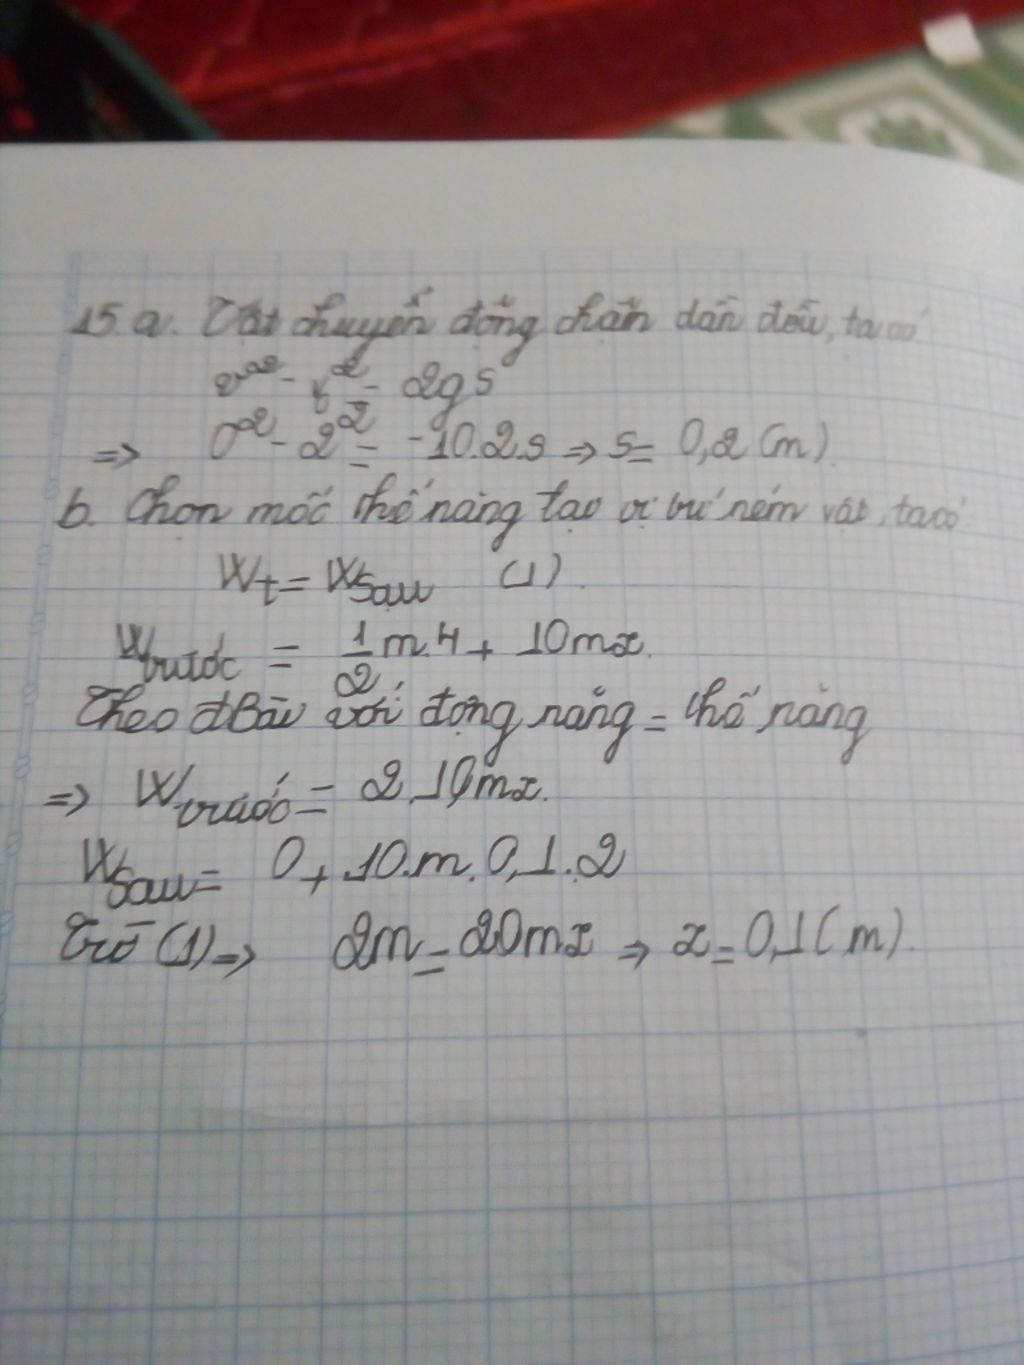 15 a. Vật chuyển động chậm dần đều, ta có
v² - v₀² = 2gS
=> 0² - 2² = -10.2.s => s = 0,2 (m)
b. Chọn mốc thế năng tạo vị trí ném vật, ta có:
Wt = Wsau (1)
Wtrước = 1/2 m.4 + 10mx.
Theo đBài với động năng = thế năng
=> Wtrước = 2.10mx.
Wsau = 0 + 10.m.0,1.2
Từ (1) => 2m = 20mx => x = 0,1 (m).